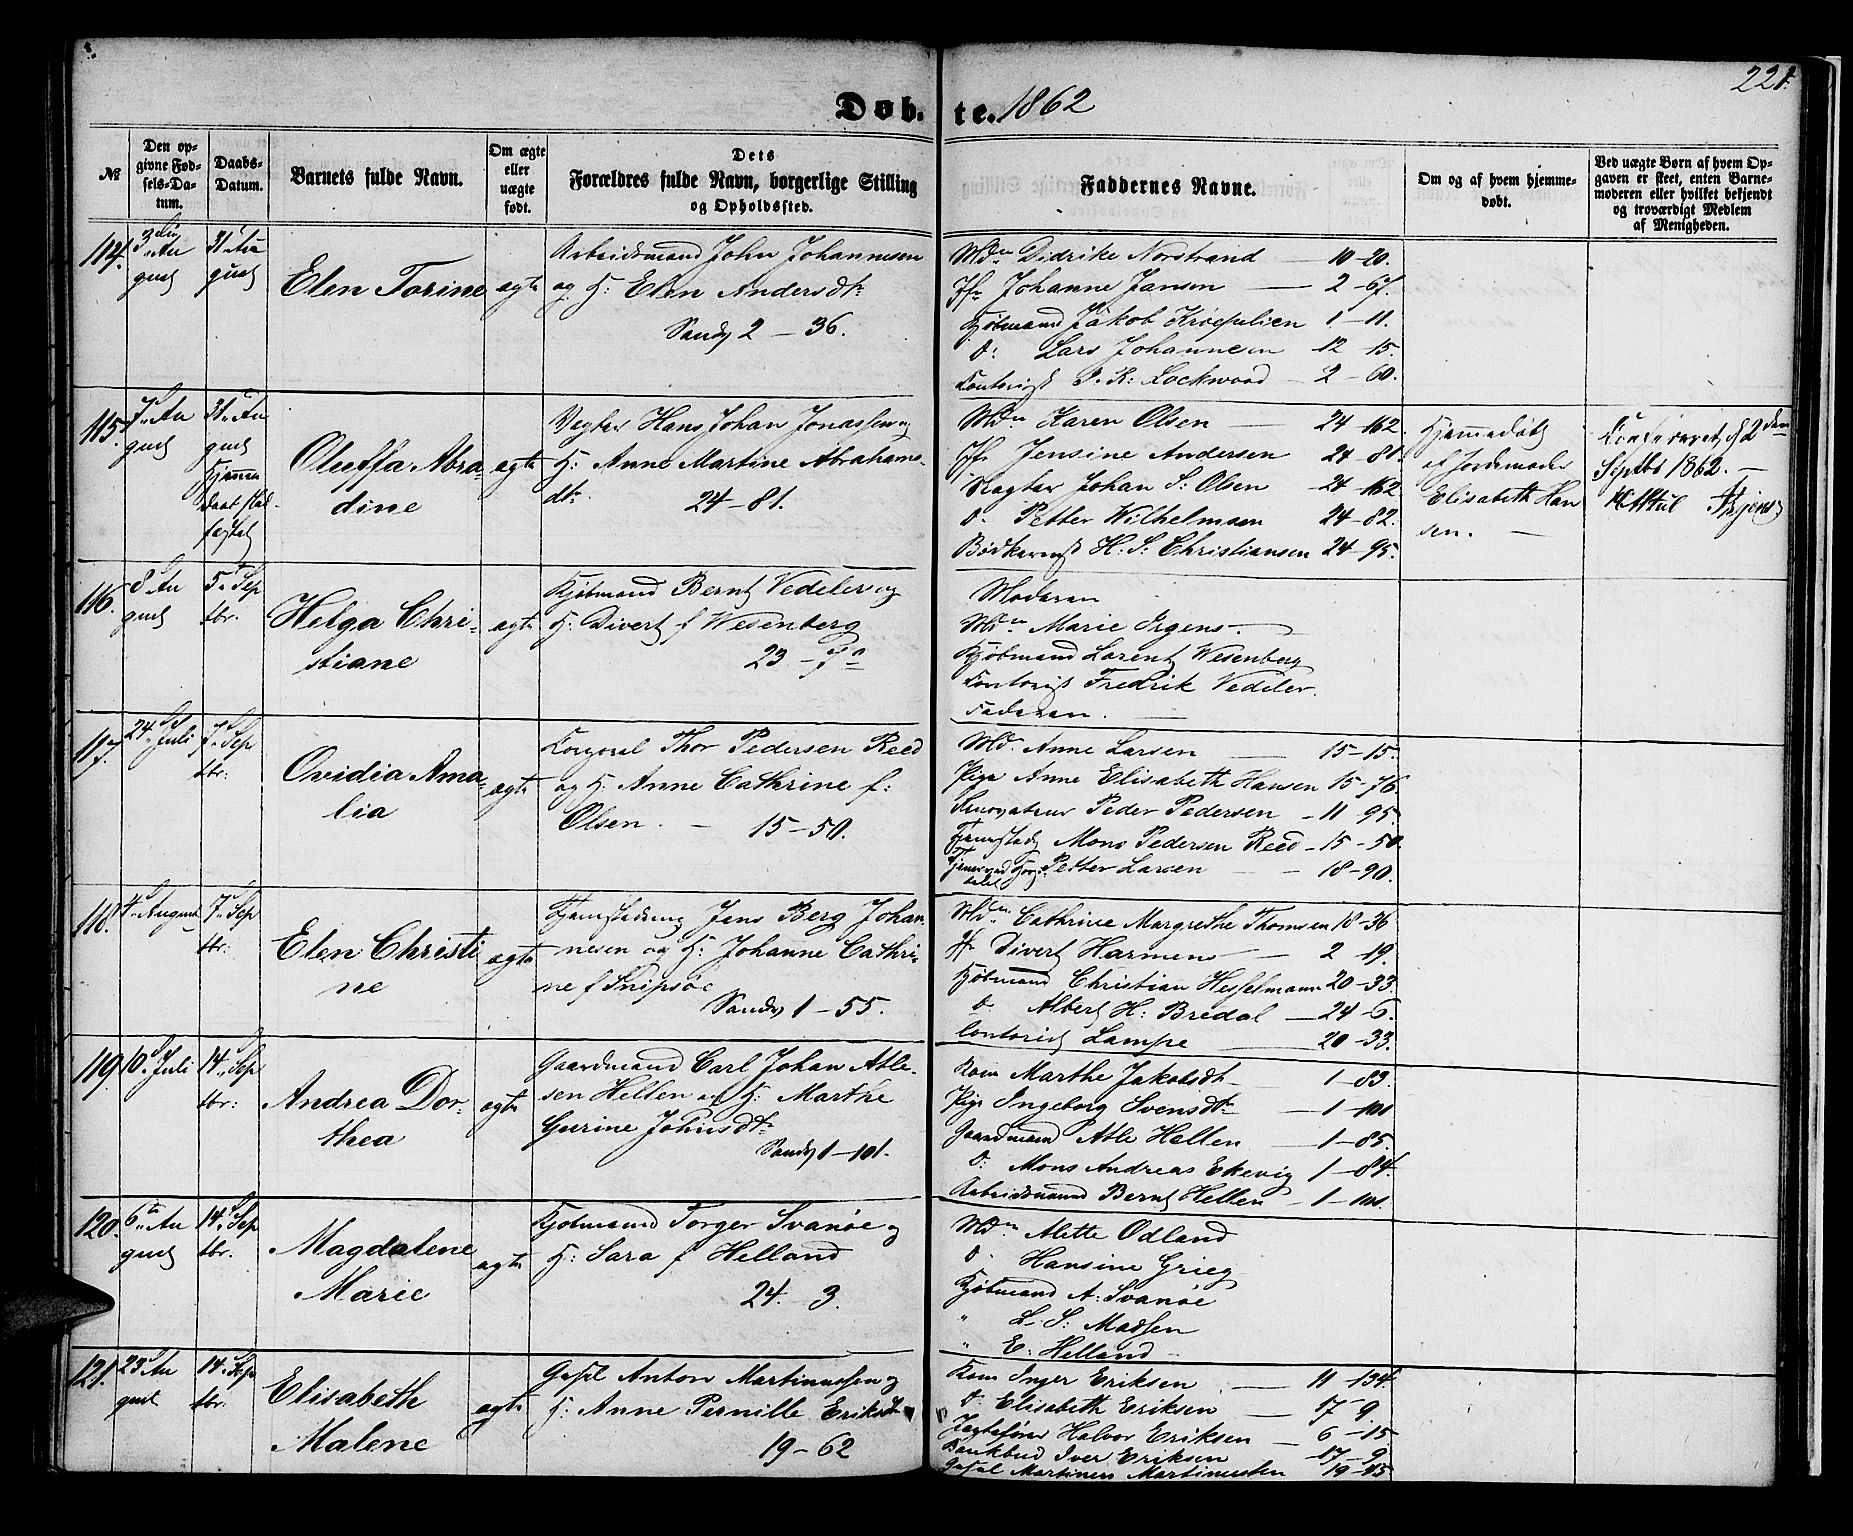 221.
Døb- te. 1862
№
Den op-
givne Fød-
sels-Da-
tum.
Daabs-
Datum.
Barnets fulde Navn.
Om ægte
eller
uægte
født.
Dets
Forældres fulde Navn, borgerlige Stilling
og Opholdssted.
Faddernes Navne.
Om og af hvem hjemme-
døbt.
Ved uægte Børn af hvem Op-
gaven er skeet, enten Barne-
moderen eller hvilket bekjendt
og troværdigt Medlem
af Menigheden.
114.
3die Au
gust
31te Au
gust
Elen Torine
ægte
Arbeidsmand John Johannesen
og H: Elen Andersdtr
Sandv 2 - 36.
Mdm Didrike Norstrand - 10-20.
Jfr Johanne Jansen - 2-67.
Kjøbmand Jakob Krøepelien 1-11.
do: Lars Johannesen - 12-15.
Contorist J. R: Lockwood - 2-60.
115.
7de Au
gust
31te Au
gust
Hjemme
daab stad
fæstet
Oluffa Abra-
dine
ægte
Vægter Hans Johan Jonassen og
H: Anne Martine Abrahams-
dtr. 24-81.
Mdm Karen Olsen - 24-162.
Jfr Jensine Andersen 24-81.
Vægter Johan S: Olsen - 24-162
do. Petter Wilhelmsen 24-82.
Bødkersv H. S: Christiansen 24-95.
Hjemmedøbt
af Jordemoder
Elisabeth Han
sen. -
Septbr 1862. -
116.
8de Au
gust
5te Sep
tbr.
Helga Chri-
stiane
ægte
Kjøbmand Bernt Vedeler og
H: Divert f Wesenberg
23 - 7a
Moderen
Mdm Marie Irgens. -
Kjøbmand Larentz Wesenberg
Contorist Fredrik Vedeler.
Faderen. -
117.
24de Juli
7de Sep
tbr:
Ovidia Ama-
lia
ægte
Corporal Thor Pedersen Reed
og H: Anne Cathrine f:
Olsen. - 15-50.
Md. Anne Larsen - 15-15.
Pige Anne Elisabeth Hansen 15-76
Renovateur Peder Pedersen - 11 95.
Mons Pedersen Reed - 15-50.
Petter Larsen - 18-90.
118.
4de August
7de Sep
tbr:
Elen Christi
ne
ægte
Jens Berg Johan
nesen og H: Johanne Cathri-
ne f Snipsøe
Sandv 1 - 55.
Mdm Cathrine Margrethe Thomsen 18-36
Jfr Divert Harmens - 2-19.
Kjøbmand Christian Hesselmann 20-33.
do Albert H: Bredal - 24-6.
Contorist Lampe - 20-33.
119.
10de Juli
14de Sep
tbr:
Andrea Dor-
thea
ægte
Gaardmand Carl Johan Atle-
sen Hellen og H: Marthe
Gurine Johnsdtr
Sandv 1-101.
Kone Marthe Jakobsdtr - 1-83.
Pige Ingeborg Svensdtr - 1-101
Gaardmand Atle Hellen - 1-85.
do: Mons Andreas Ekevig 1-84.
Arbeidsmand Bernt Hellen - 1-101.
120.
6te Au
gust
14de Sep
tbr.
Magdalene
Marie
ægte
Kjøbmand Torger Svanøe og
H: Sara f Helland
24. 3.
Mdm. Alette Odland
do. Hansine Grieg
Kjøbmand A: Svanøe
" L. S: Madsen
" E: Helland -
121.
23de Au
gust
14de Sep
tbr:
Elisabeth
Malene
ægte
Gesel Anton Martinussen og
H: Anne Pernille Eriksdtr
19-62
Kone Inger Eriksen - 11-134.
do Elisabeth Eriksen - 17-9.
Jægtefører Halvor Eriksen - 6-15
Bankbud Iver Eriksen - 17-9.
Gesel Martinus Martinussen 19-45